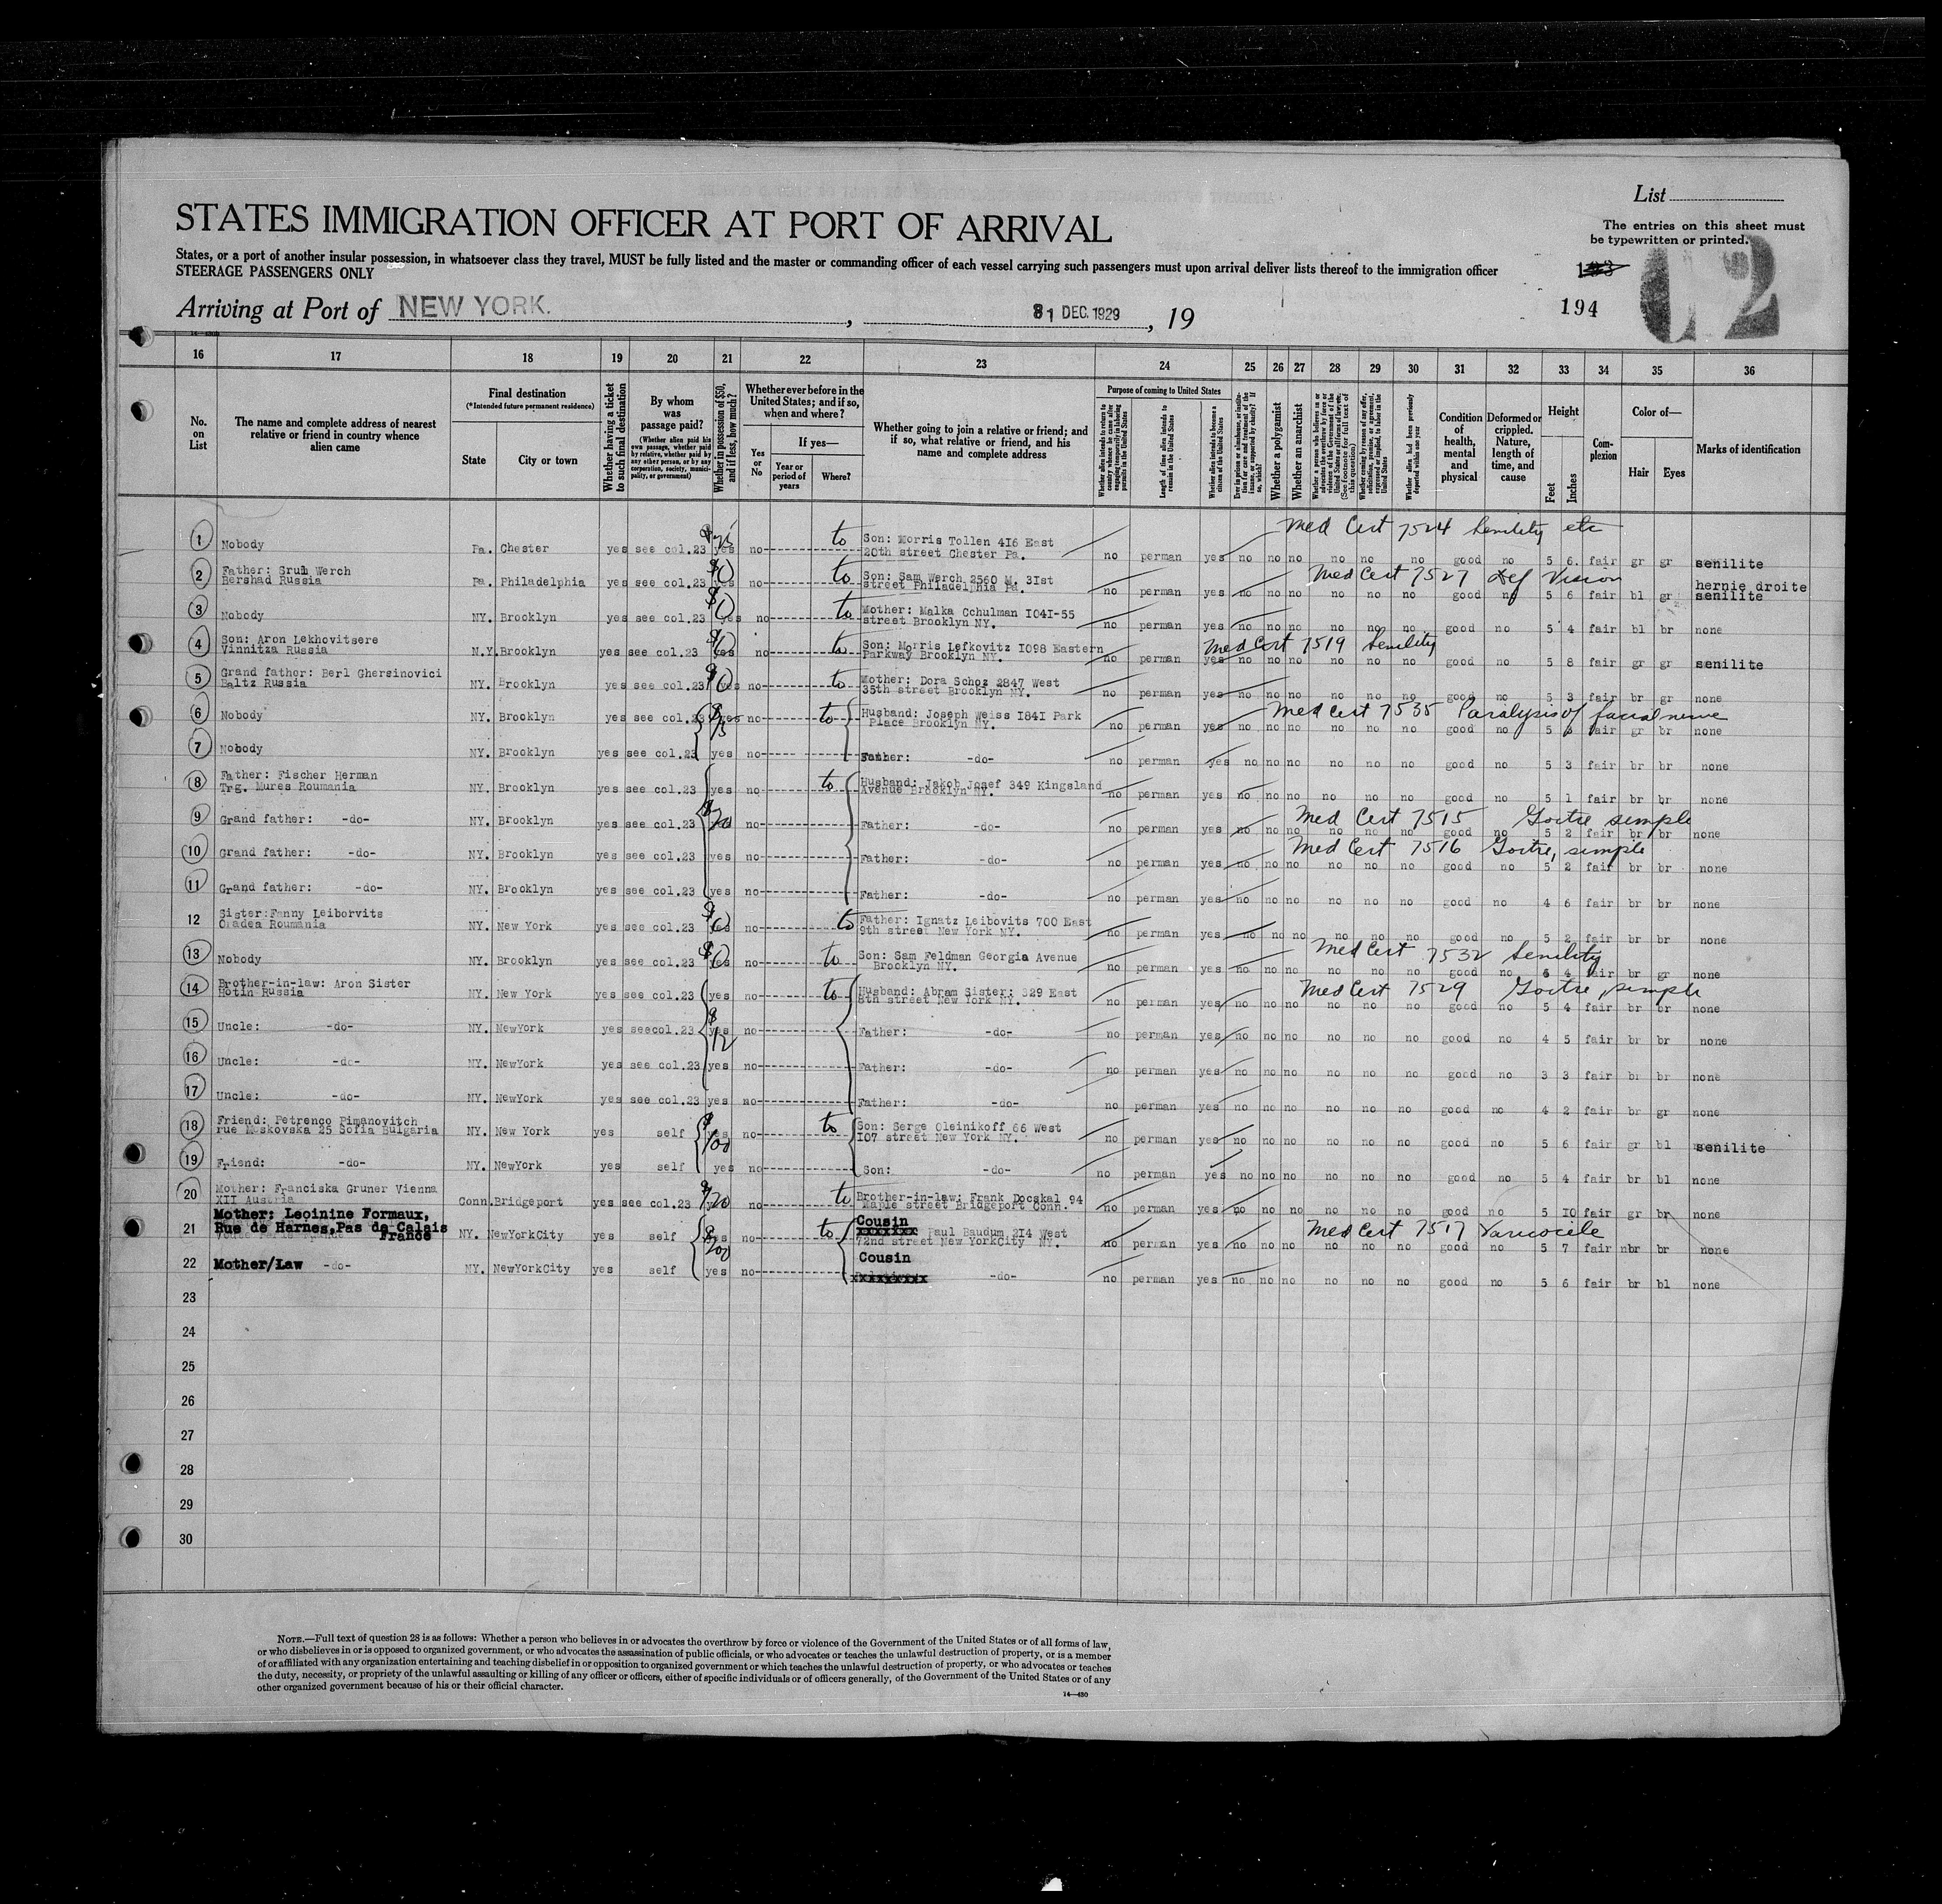 List
The entries on this sheet must
be typewritten or printed.
STATES IMMIGRATION OFFICER AT PORT OF ARRIVAL
States, or a port of another insular possession, in whatsoever class they travel, MUST be fully listed and the master or commanding officer of each vessel carrying such passengers must upon arrival deliver lists thereof to the immigration officer
STEERAGE PASSENGERS ONLY
194
Arriving at Port of NEW YORK. , 31 DEC. 1929 , 19
16 17 18 19 20 21 22 23 24 25 26 27 28 29 30 31 32 33 34 35 36
No. on List
The name and complete address of nearest relative or friend in country whence alien came
Final destination
(*Intended future permanent residence)
State
City or town
Whether having a ticket to such final destination
By whom was passage paid?
(Whether alien paid his own passage, whether paid by relative, whether paid by any other person, or by any corporation, society, municipality, or government)
Whether in possession of $50, and if less, how much?
Whether ever before in the United States; and if so, when and where?
Yes or No
If yes—
Year or period of years
Where?
Whether going to join a relative or friend; and if so, what relative or friend, and his name and complete address
Purpose of coming to United States
Whether alien intends to return to country whence he came after engaging temporarily in laboring pursuits in the United States
Length of time alien intends to remain in the United States
Whether alien intends to become a citizen of the United States
Whether a polygamist
Whether an anarchist
Whether alien had been previously deported within one year
Condition of health, mental and physical
Deformed or crippled. Nature, length of time, and cause
Height
Feet
Inches
Complexion
Color of—
Hair
Eyes
Marks of identification
Med Cert 7524 Senility etc
1 Nobody Pa. Chester yes see col.23 yes no to Son: Morris Tollen 416 East 20th street Chester Pa. no perman yes no no no no no no good no 5 6 fair gr gr senilite
Med Cert 7527 def Vision
2 Father: Srul Werch Bershad Russia Pa. Philadelphia yes see col.23 yes no to Son: Sam Werch 2560 M. 31st street Philadelphia Pa. no perman yes no no no no no no good no 5 6 fair bl gr hernie droite senilite
3 Nobody NY. Brooklyn yes see col.23 yes no to Mother: Malka Cchulman 1041-55 street Brooklyn NY. no perman yes no no no no no no good no 5 4 fair bl br none
Med Cert 7519 Senility
4 Son: Aron Lekhovitsere Vinnitza Russia N.Y. Brooklyn yes see col.23 yes no to Son: Morris Lefkovitz 1098 Eastern Parkway Brooklyn NY. no perman yes no no no no no no good no 5 8 fair gr gr senilite
5 Grand father: Berl Ghersinovici Baltz Russia NY. Brooklyn yes see col.23 yes no to Mother: Dora Schoz 2847 West 35th street Brooklyn NY. no perman yes no no no no no no good no 5 3 fair br gr none
Med Cert 7535 Paralysis of facial nerve
6 Nobody NY. Brooklyn yes see col.23 yes no to Husband: Joseph Weiss 1841 Park Place Brooklyn NY. no perman yes no no no no no no good no 5 fair gr br none
7 Nobody NY. Brooklyn yes see col.23 yes no Father: -do- no perman yes no no no no no no good no 5 3 fair br br none
8 Father: Fischer Herman Trg. Mures Roumania NY. Brooklyn yes see col.23 yes no to Husband: Jakob Josef 349 Kingsland Avenue Brooklyn NY. no perman yes no no no no no no good no 5 1 fair br br none
Med Cert 7515 Goitre simple
9 Grand father: -do- NY. Brooklyn yes see col.23 $20 no Father: -do- no perman yes no no no no no no good no 5 2 fair br br none
Med Cert 7516 Goitre, simple
10 Grand father: -do- NY. Brooklyn yes see col.23 yes no Father: -do- no perman yes no no no no no no good no 5 2 fair br br none
11 Grand father: -do- NY. Brooklyn yes see col.23 yes no Father: -do- no perman yes no no no no no no good no 4 6 fair br br none
12 Sister: Fanny Leiborvits Oradea Roumania NY. New York yes see col.23 yes no to Father: Ignatz Leibovits 700 East 9th street New York NY. no perman yes no no no no no no good no 5 2 fair br br none
Med Cert 7532 Senility
13 Nobody NY. Brooklyn yes see col.23 yes no to Son: Sam Feldman Georgia Avenue Brooklyn NY. no perman yes no no no no no no good no 4 fair br gr none
Med Cert 7529 Goitre, simple
14 Brother-in-law: Aron Sister Hotin Russia NY. New York yes see col.23 yes no to Husband: Abram Sister: 329 East 8th street New York NY. no perman yes no no no no no no good no 5 4 fair br br none
15 Uncle: -do- NY. NewYork yes seecol.23 yes $12 no Father: -do- no perman yes no no no no no no good no 4 5 fair br br none
16 Uncle: -do- NY. NewYork yes see col.23 yes no Father: -do- no perman yes no no no no no no good no 3 3 fair br br none
17 Uncle: -do- NY. NewYork yes see col.23 yes no Father: -do- no perman yes no no no no no no good no 4 2 fair br gr none
18 Friend: Petrenco Pimanovitch rue Moskovska 25 Sofia Bulgaria NY. New York yes self yes $100 no to Son: Serge Oleinikoff 66 West 107 street New York NY. no perman yes no no no no no no good no 5 6 fair gr bl senilite
19 Friend: -do- NY. NewYork yes self yes no Son: -do- no perman yes no no no no no no good no 5 4 fair br bl none
20 Mother: Franciska Gruner Vienna XII Austria Conn. Bridgeport yes see col.23 $20 no to Brother-in-law: Frank Docskal 94 Maple street Bridgeport Conn. no perman yes no no no no no no good no 5 10 fair gr br none
Med Cert 7517 Varicocile
21 Mother: Leoinine Formaux, Rue de Harnes,Pas de Calais France NY. NewYorkCity yes self yes $200 no to Cousin Paul Baudum 214 West 72nd street New YorkCity NY. no perman yes no no no no no no good no 5 7 fair nbr br none
22 Mother/Law -do- NY. NewYorkCity yes self yes no Cousin -do- no perman yes no no no no no no good no 5 6 fair br bl none
23
24
25
26
27
28
29
30
NOTE.—Full text of question 28 is as follows: Whether a person who believes in or advocates the overthrow by force or violence of the Government of the United States or of all forms of law,
or who disbelieves in or is opposed to organized government, or who advocates the assassination of public officials, or who advocates or teaches the unlawful destruction of property, or is a member
of or affiliated with any organization entertaining and teaching disbelief in or opposition to organized government or which teaches the unlawful destruction of property, or who advocates or teaches
the duty, necessity, or propriety of the unlawful assaulting or killing of any officer or officers, either of specific individuals or of officers generally, of the Government of the United States or of any
other organized government because of his or their official character.
14—430